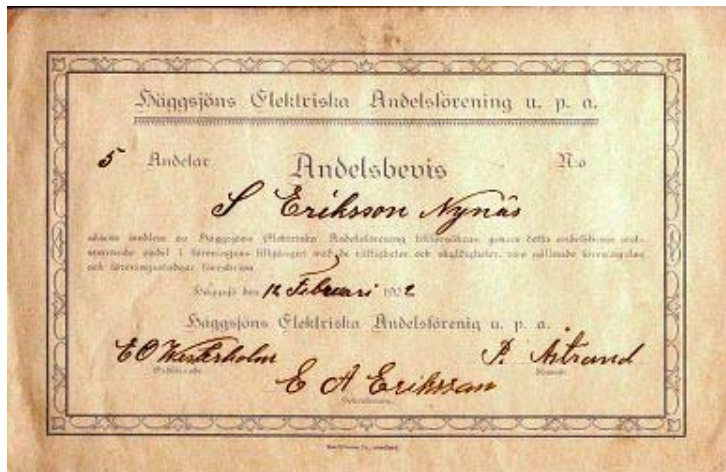 Häggsjöns Elektriska Andelsförening u. p. a.
5 Andelar Andelsbevis N:o
S Eriksson Nynäs
såsom medlem av Häggsjöns Elektriska Andelsförening tillförsäkras genom detta andelsbevis mot-
svarande andel i föreningens tillgångar med de rättigheter och skyldigheter, som gällande föreningslag
och föreningsstadgar föreskriva
Häggsjö den 12 Februari 1922
Häggsjöns Elektriska Andelsförenig u. p. a.
E O Westerholm P. Åstrand
E A Eriksson